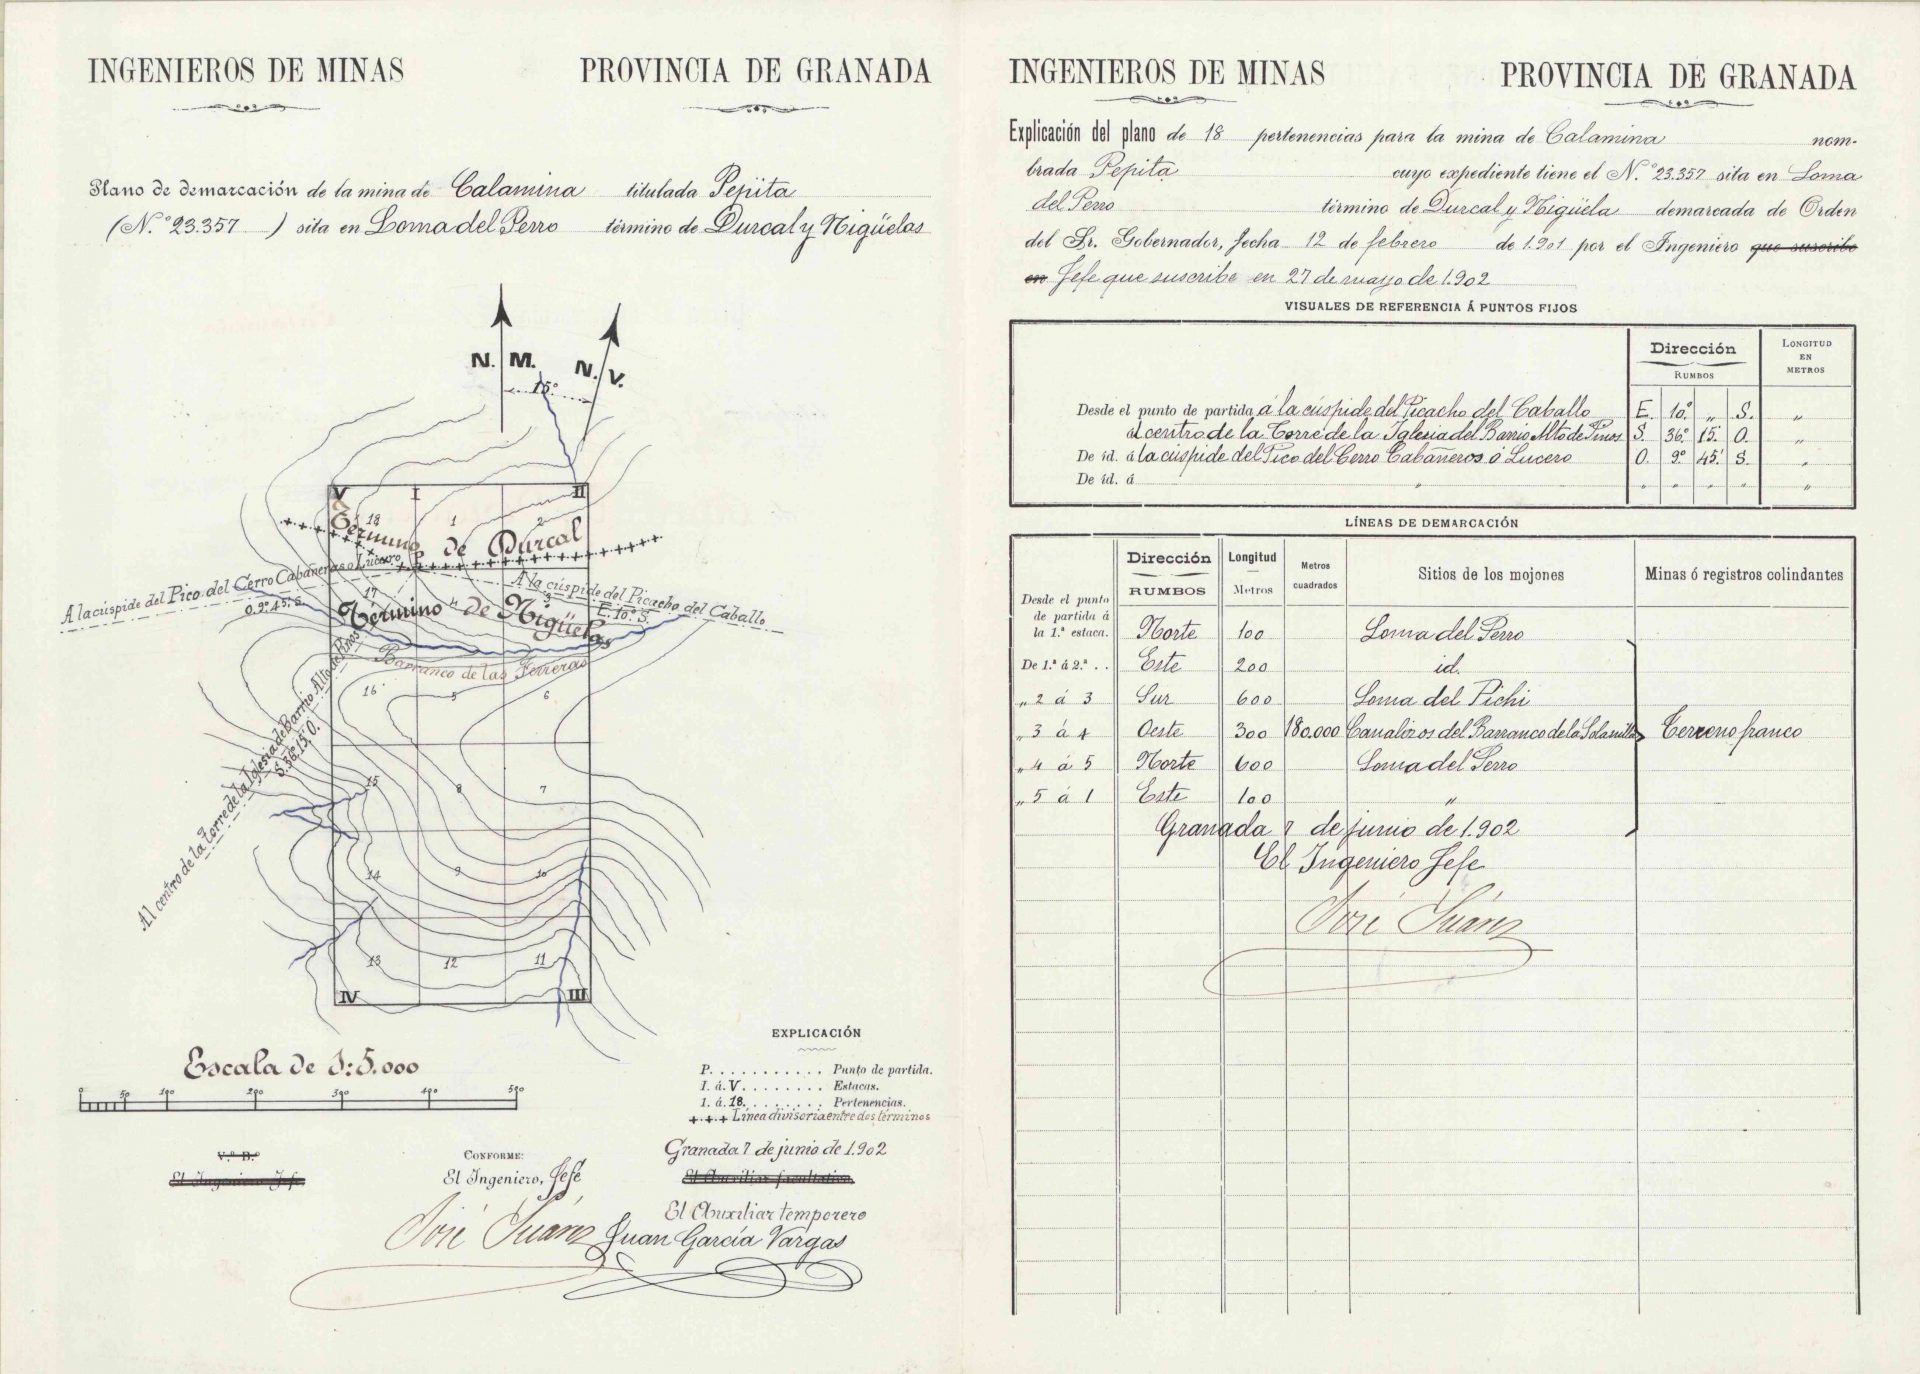 INGENIEROS DE MINAS
PROVINCIA DE GRANADA
Plano de demarcación de la mina de Calamina titulada Pepita
(N.º 23.357 ) sita en Loma del Perro término de Durcal y Nigüelas
N. M.
N. V.
15º
V I II
18 1 2
Término de Durcal
P
A la cúspide del Pico del Cerro Cabañeras o Lucero
O. 9º 45' S.
A la cúspide del Picacho del Caballo
E. 10º S.
17 4 3
Término de Nigüelas
Barranco de las Ferreras
16 5 6
Al centro de la Torre de la Iglesia de Barrio Alto de Pinos
S. 36º 15' O.
15 8 7
14 9 10
13 12 11
IV III
Escala de 1:5.000
0 50 100 200 300 400 500
EXPLICACIÓN
P. . . . . . . . . . . . Punto de partida.
I. á. V. . . . . . . . Estacas.
1. á. 18. . . . . . . . Pertenencias.
+.+.+ Línea divisoria entre dos términos
Granada 7 de junio de 1.902
V.º B.º
El Ingeniero Jefe
CONFORME:
El Ingeniero, Jefe
El Auxiliar facultativo
El Auxiliar temporero
José Suárez
Juan García Vargas
INGENIEROS DE MINAS
PROVINCIA DE GRANADA
Explicación del plano de 18 pertenencias para la mina de Calamina nom-
brada Pepita cuyo expediente tiene el N.º 23.357 sita en Loma
del Perro término de Durcal y Nigüela demarcada de Orden
del Sr. Gobernador, fecha 12 de febrero de 1.901 por el Ingeniero que suscribe
en Jefe que suscribe en 27 de mayo de 1.902
VISUALES DE REFERENCIA Á PUNTOS FIJOS
Dirección
RUMBOS
LONGITUD EN METROS
Desde el punto de partida á la cúspide del Picacho del Caballo E. 10º „ S. „
al centro de la Torre de la Iglesia del Barrio Alto de Pinos S. 36º 15' O. „
De id. á la cúspide del Pico del Cerro Cabañeros ó Lucero O. 9º 45' S. „
De id. á „ „ „ „ „ „
LÍNEAS DE DEMARCACIÓN
Dirección
RUMBOS
Longitud
Metros
Metros cuadrados
Sitios de los mojones
Minas ó registros colindantes
Desde el punto
de partida á
la 1.ª estaca. Norte 100 Loma del Perro
De 1.ª á 2.ª . . Este 200 id.
„ 2 á 3 Sur 600 Loma del Pichi
„ 3 á 4 Oeste 300 180.000 Canalizos del Barranco de la Solanilla Terreno franco
„ 4 á 5 Norte 600 Loma del Perro
„ 5 á 1 Este 100 „
Granada 7 de junio de 1.902
El Ingeniero Jefe
José Suárez